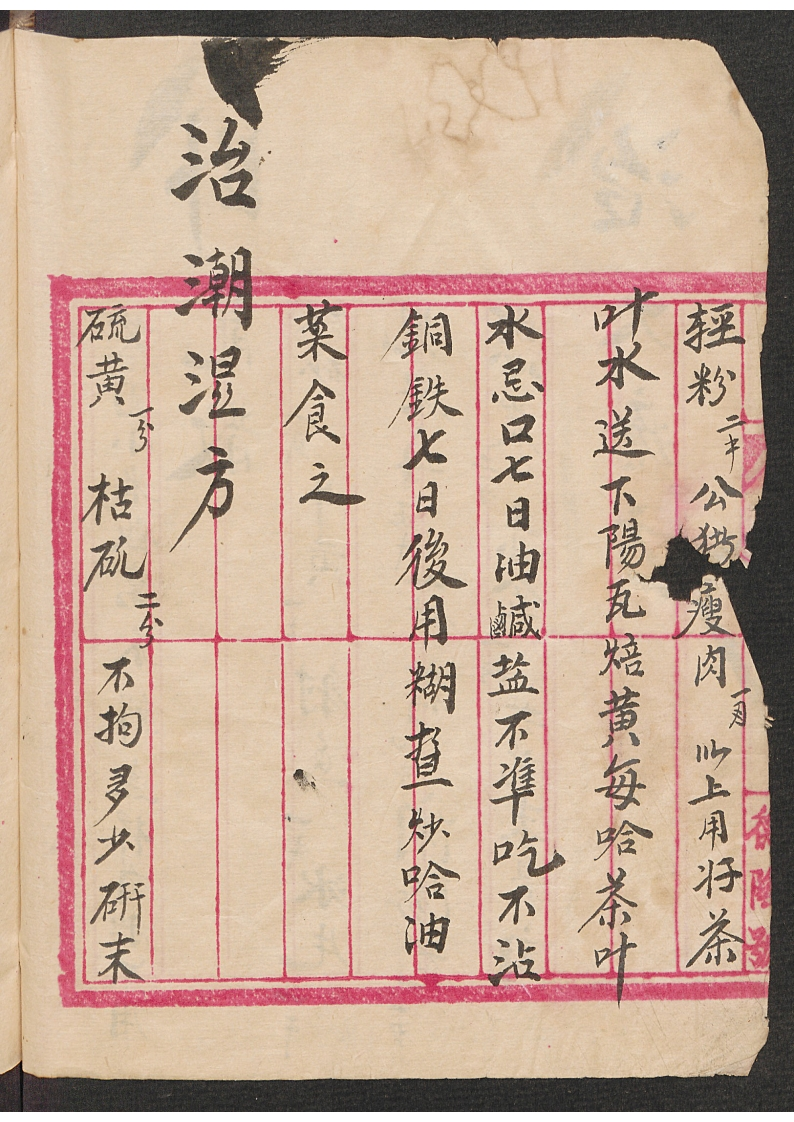 輕粉二千公猪瘦肉一角以上用好茶
叶水送下陽瓦焙黄每哈茶叶
水忌口七日油鹹盐不準吃不沾
銅鉄七日後用糊塩炒哈油
菜食之
治潮湿方
硫黄一分枯矾二分不拘多少研末